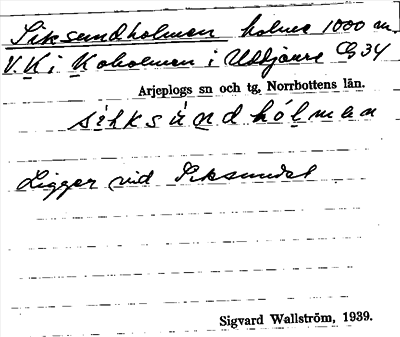 Siksundholmen holme 1000 m.
V.K i Koholmen i Uddjaure G 34
Arjeplogs sn och tg, Norrbottens län.
sihksundhólmen
Ligger vid Siksundet
Sigvard Wallström, 1939.